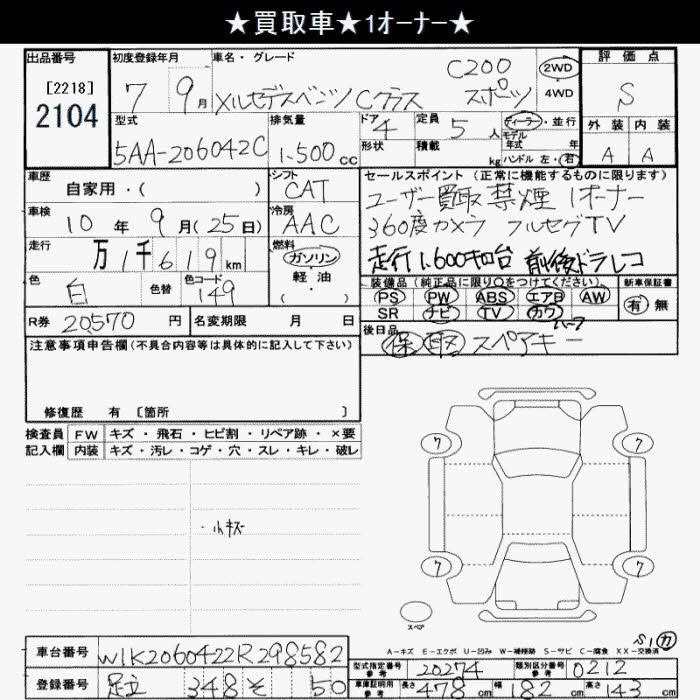 ★買取車★1オーナー★
出品番号 初度登録年月 車名・グレード 評価点
[2218] 7 9月 メルセデスベンツ Cクラス C200 スポーツ 2WD ・ 4WD S
2104 型式 排気量 ドア 定員 ディーラー・並行 外装 内装
5AA-206042C 1.500cc 4 5人 モデル年式 年 A A
形状 積載 kg ハンドル 左・右
車歴 自家用・( ) シフト CAT セールスポイント(正常に機能するものに限ります)
車検 10年9月(25日) 冷房 AAC ユーザー買取 禁煙 1オーナー
360度カメラ フルセグTV
走行 万1千619km 燃料 ガソリン・軽油・( ) 走行1,600キロ台 前後ドラレコ
色 白 色替 色コード 149 装備品(純正品に限り○をつけてください) 新車保証書
PS PW ABS エアB AW 有・無
SR ナビ TV カワ
R券 20570円 名変期限 月 日 後日品
保 取 スペアキー
注意事項申告欄(不具合内容等は具体的に記入して下さい)
修復歴 有 [箇所 ]
検査員 FW キズ・飛石・ヒビ割・リペア跡・×要
記入欄 内装 キズ・汚レ・コゲ・穴・スレ・キレ・破レ
7 7
・小キズ
7 7
スペア
A-キズ E-エクボ U-凹み W-補修跡 S-サビ C-腐食 XX-交換済
車台番号 W1K2060422R298582 型式指定番号 参考 20274 類別区分番号 参考 0212
登録番号 足立 348 そ 50 車庫証明用 参考 長さ 478cm 幅 182cm 高さ 143cm